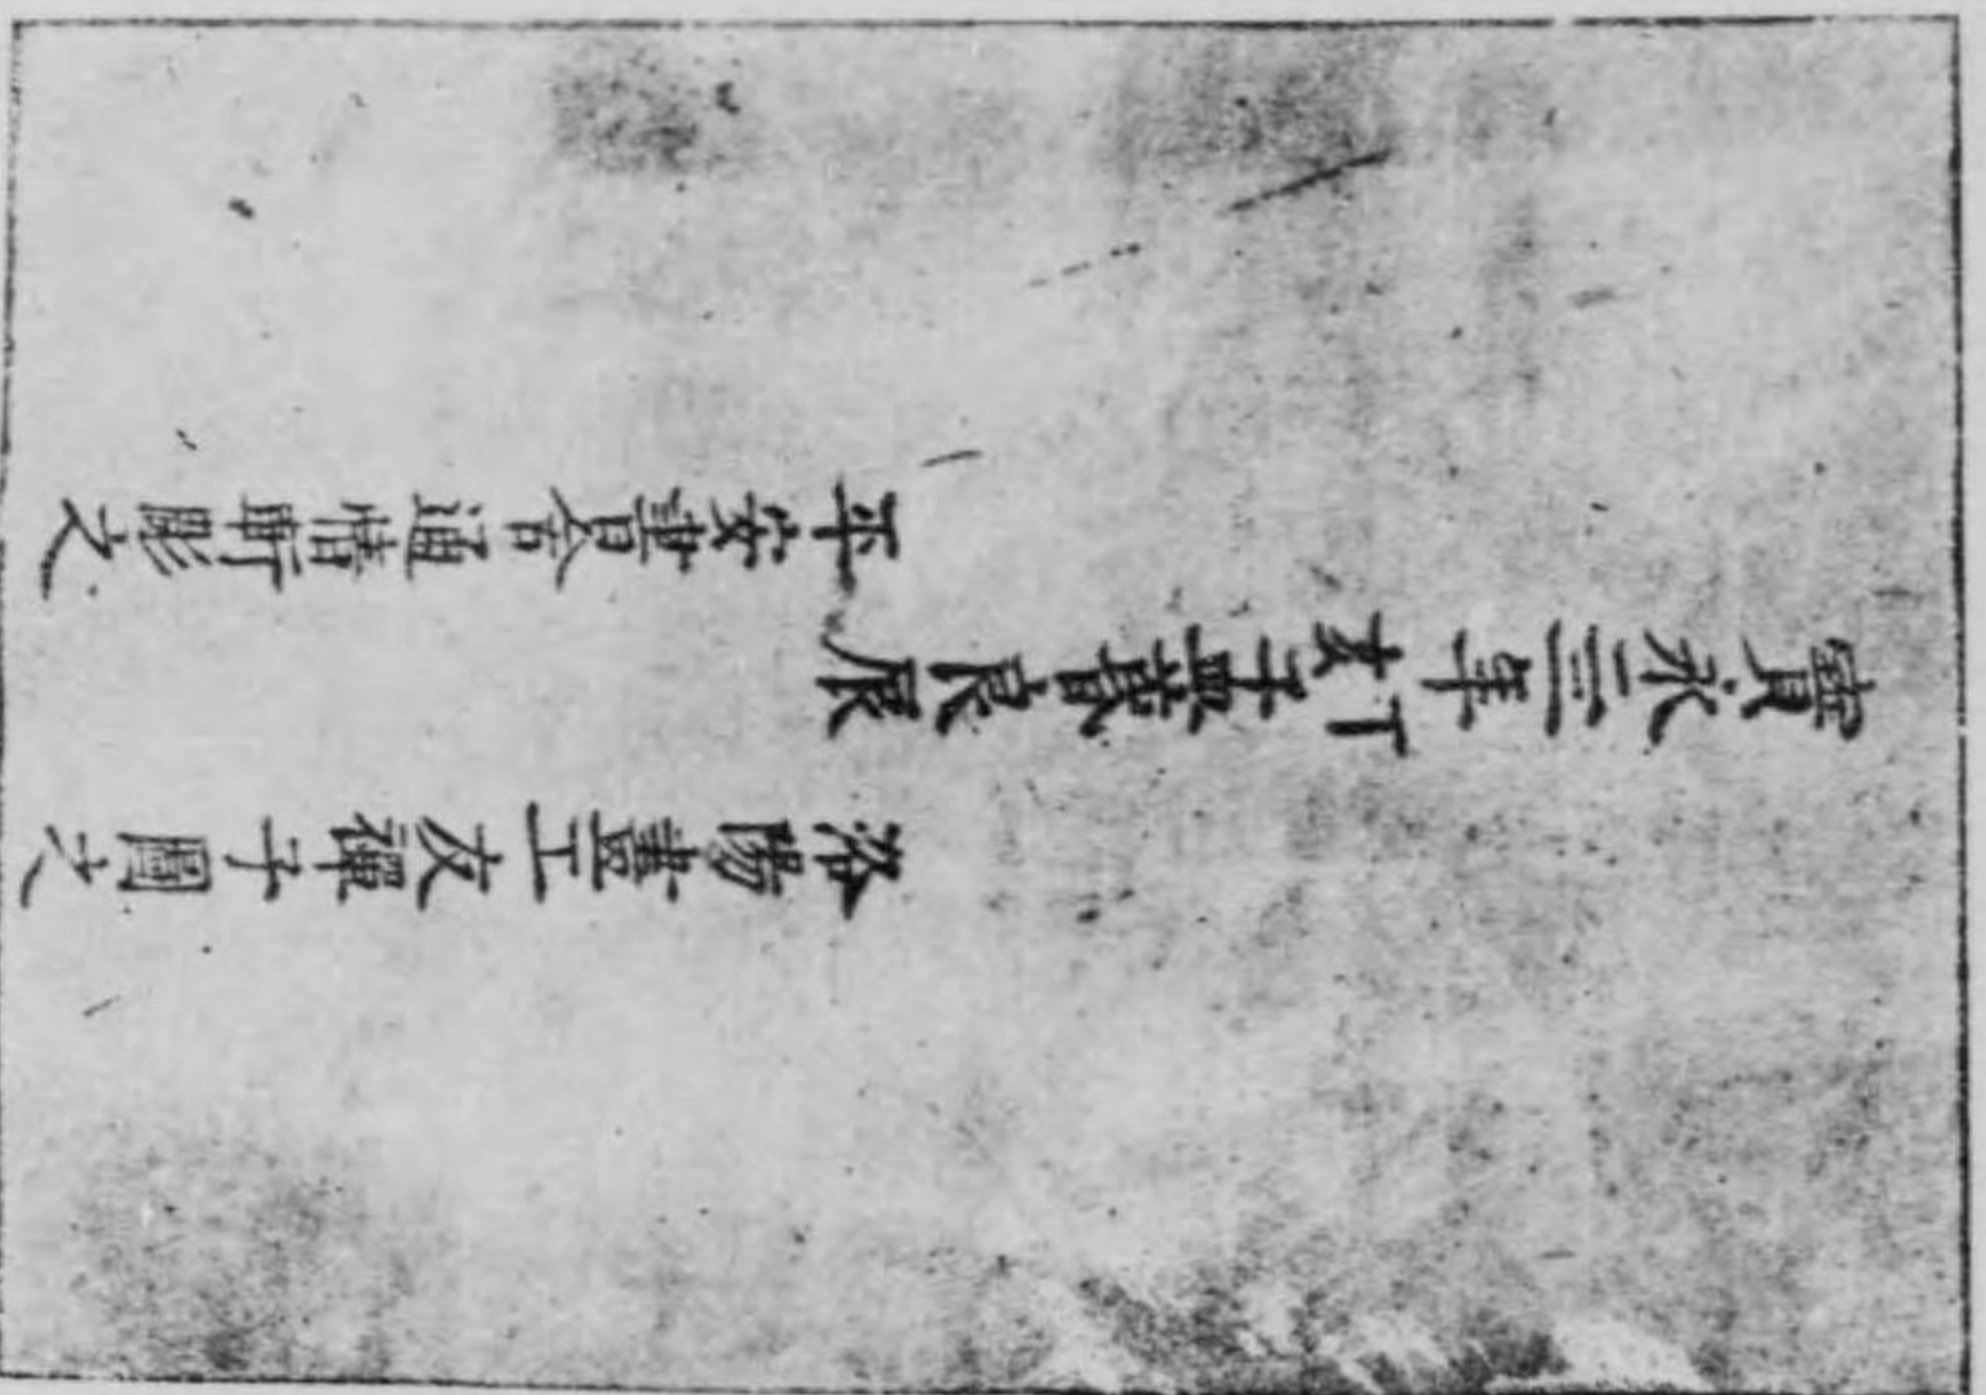 寶永亖年丁亥孟春良辰
洛陽畫工友禪子圖之
平安書舍通情軒彫之